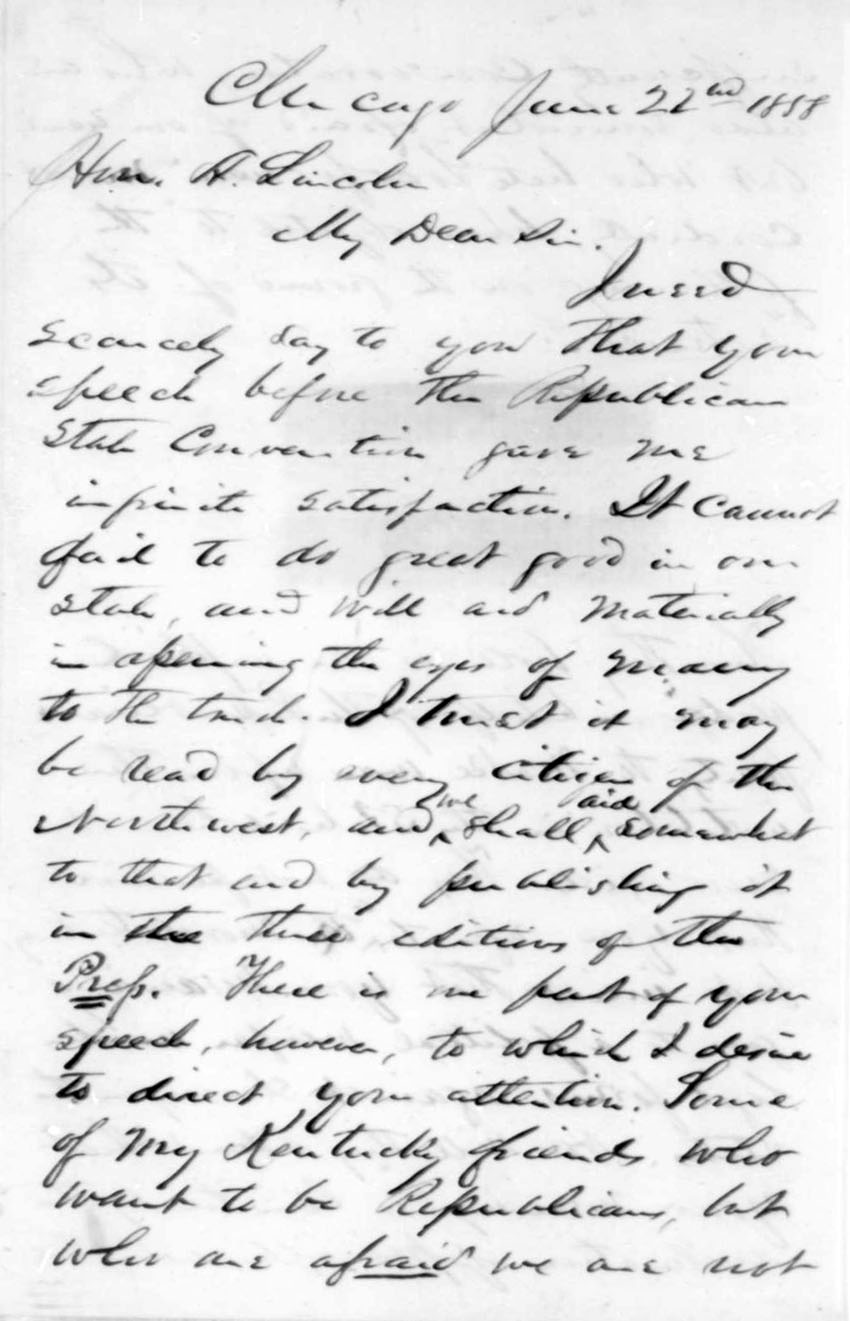 Chicago June 22nd 1858
Hon. A. Lincoln
My Dear Sir.
I need
scarcely say to you that your
speech before the Republican
State Convention gave me
infinite satisfaction. It cannot
fail to do great good in our
State, and will aid materially
in opening the eyes of many
to the truth. I trust it may
be read by every citizen of the
Northwest, and we shall aid somewhat
to that end by publishing it
in the three editions of the
Press. There is one part of your
speech, however, to which I desire
to direct your attention. Some
of my Kentucky friends who
want to be Republicans, but
who are afraid we are not